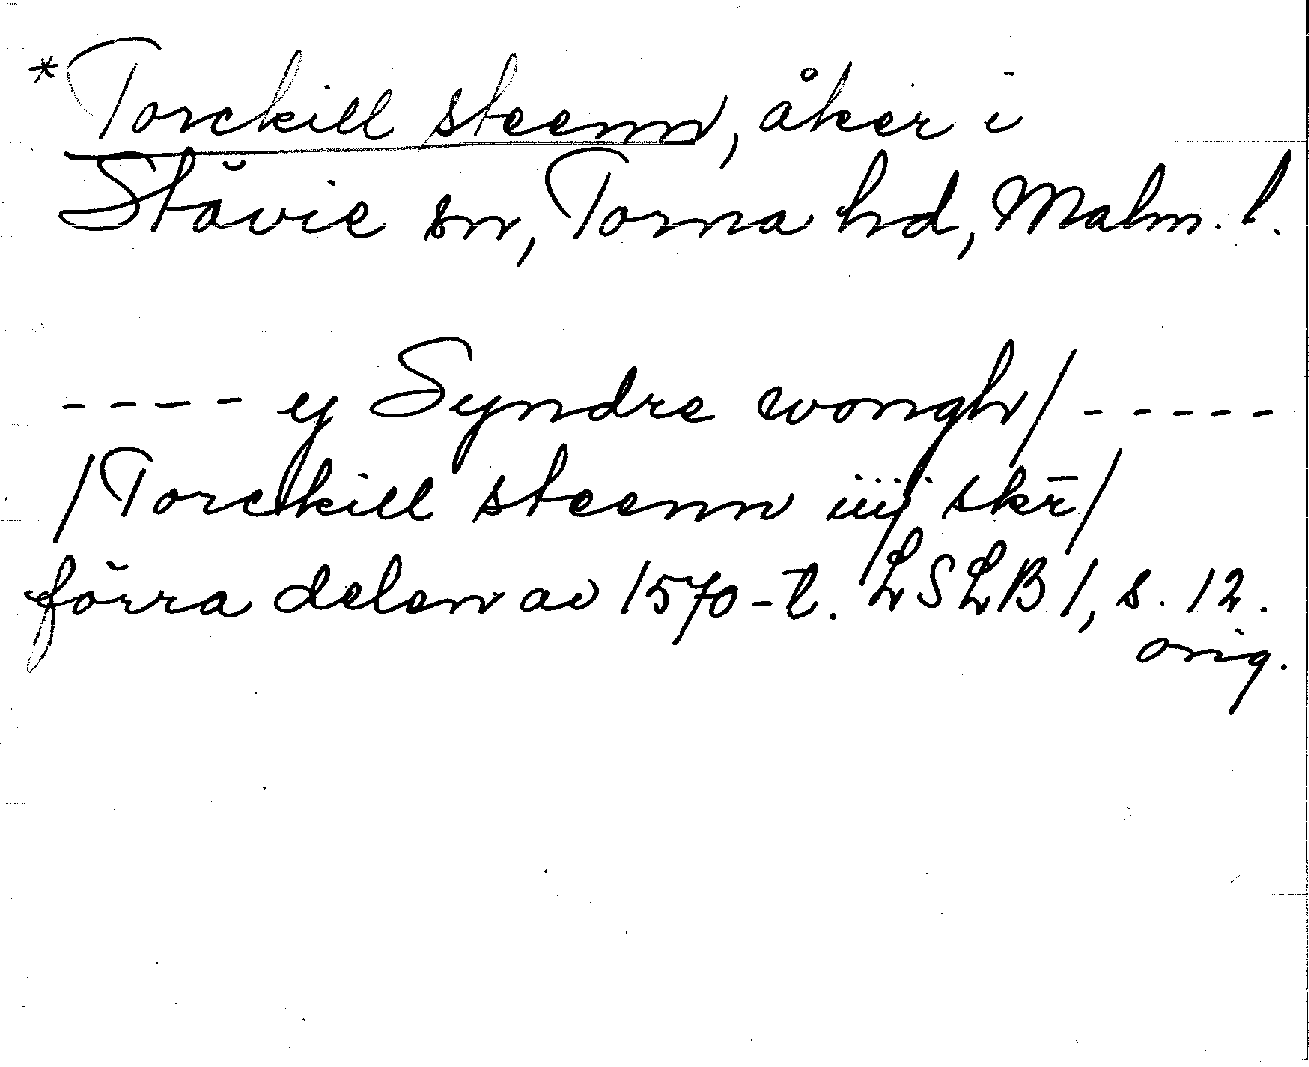 *Torckill steenn, åker i
Stävie sn, Torna hd, Malm. l.
---- ej Syndre wongh/ -----
/Torckill steenn iiij skr̄/
förra delen av 1570-t. LSLB 1, s. 12.
orig.